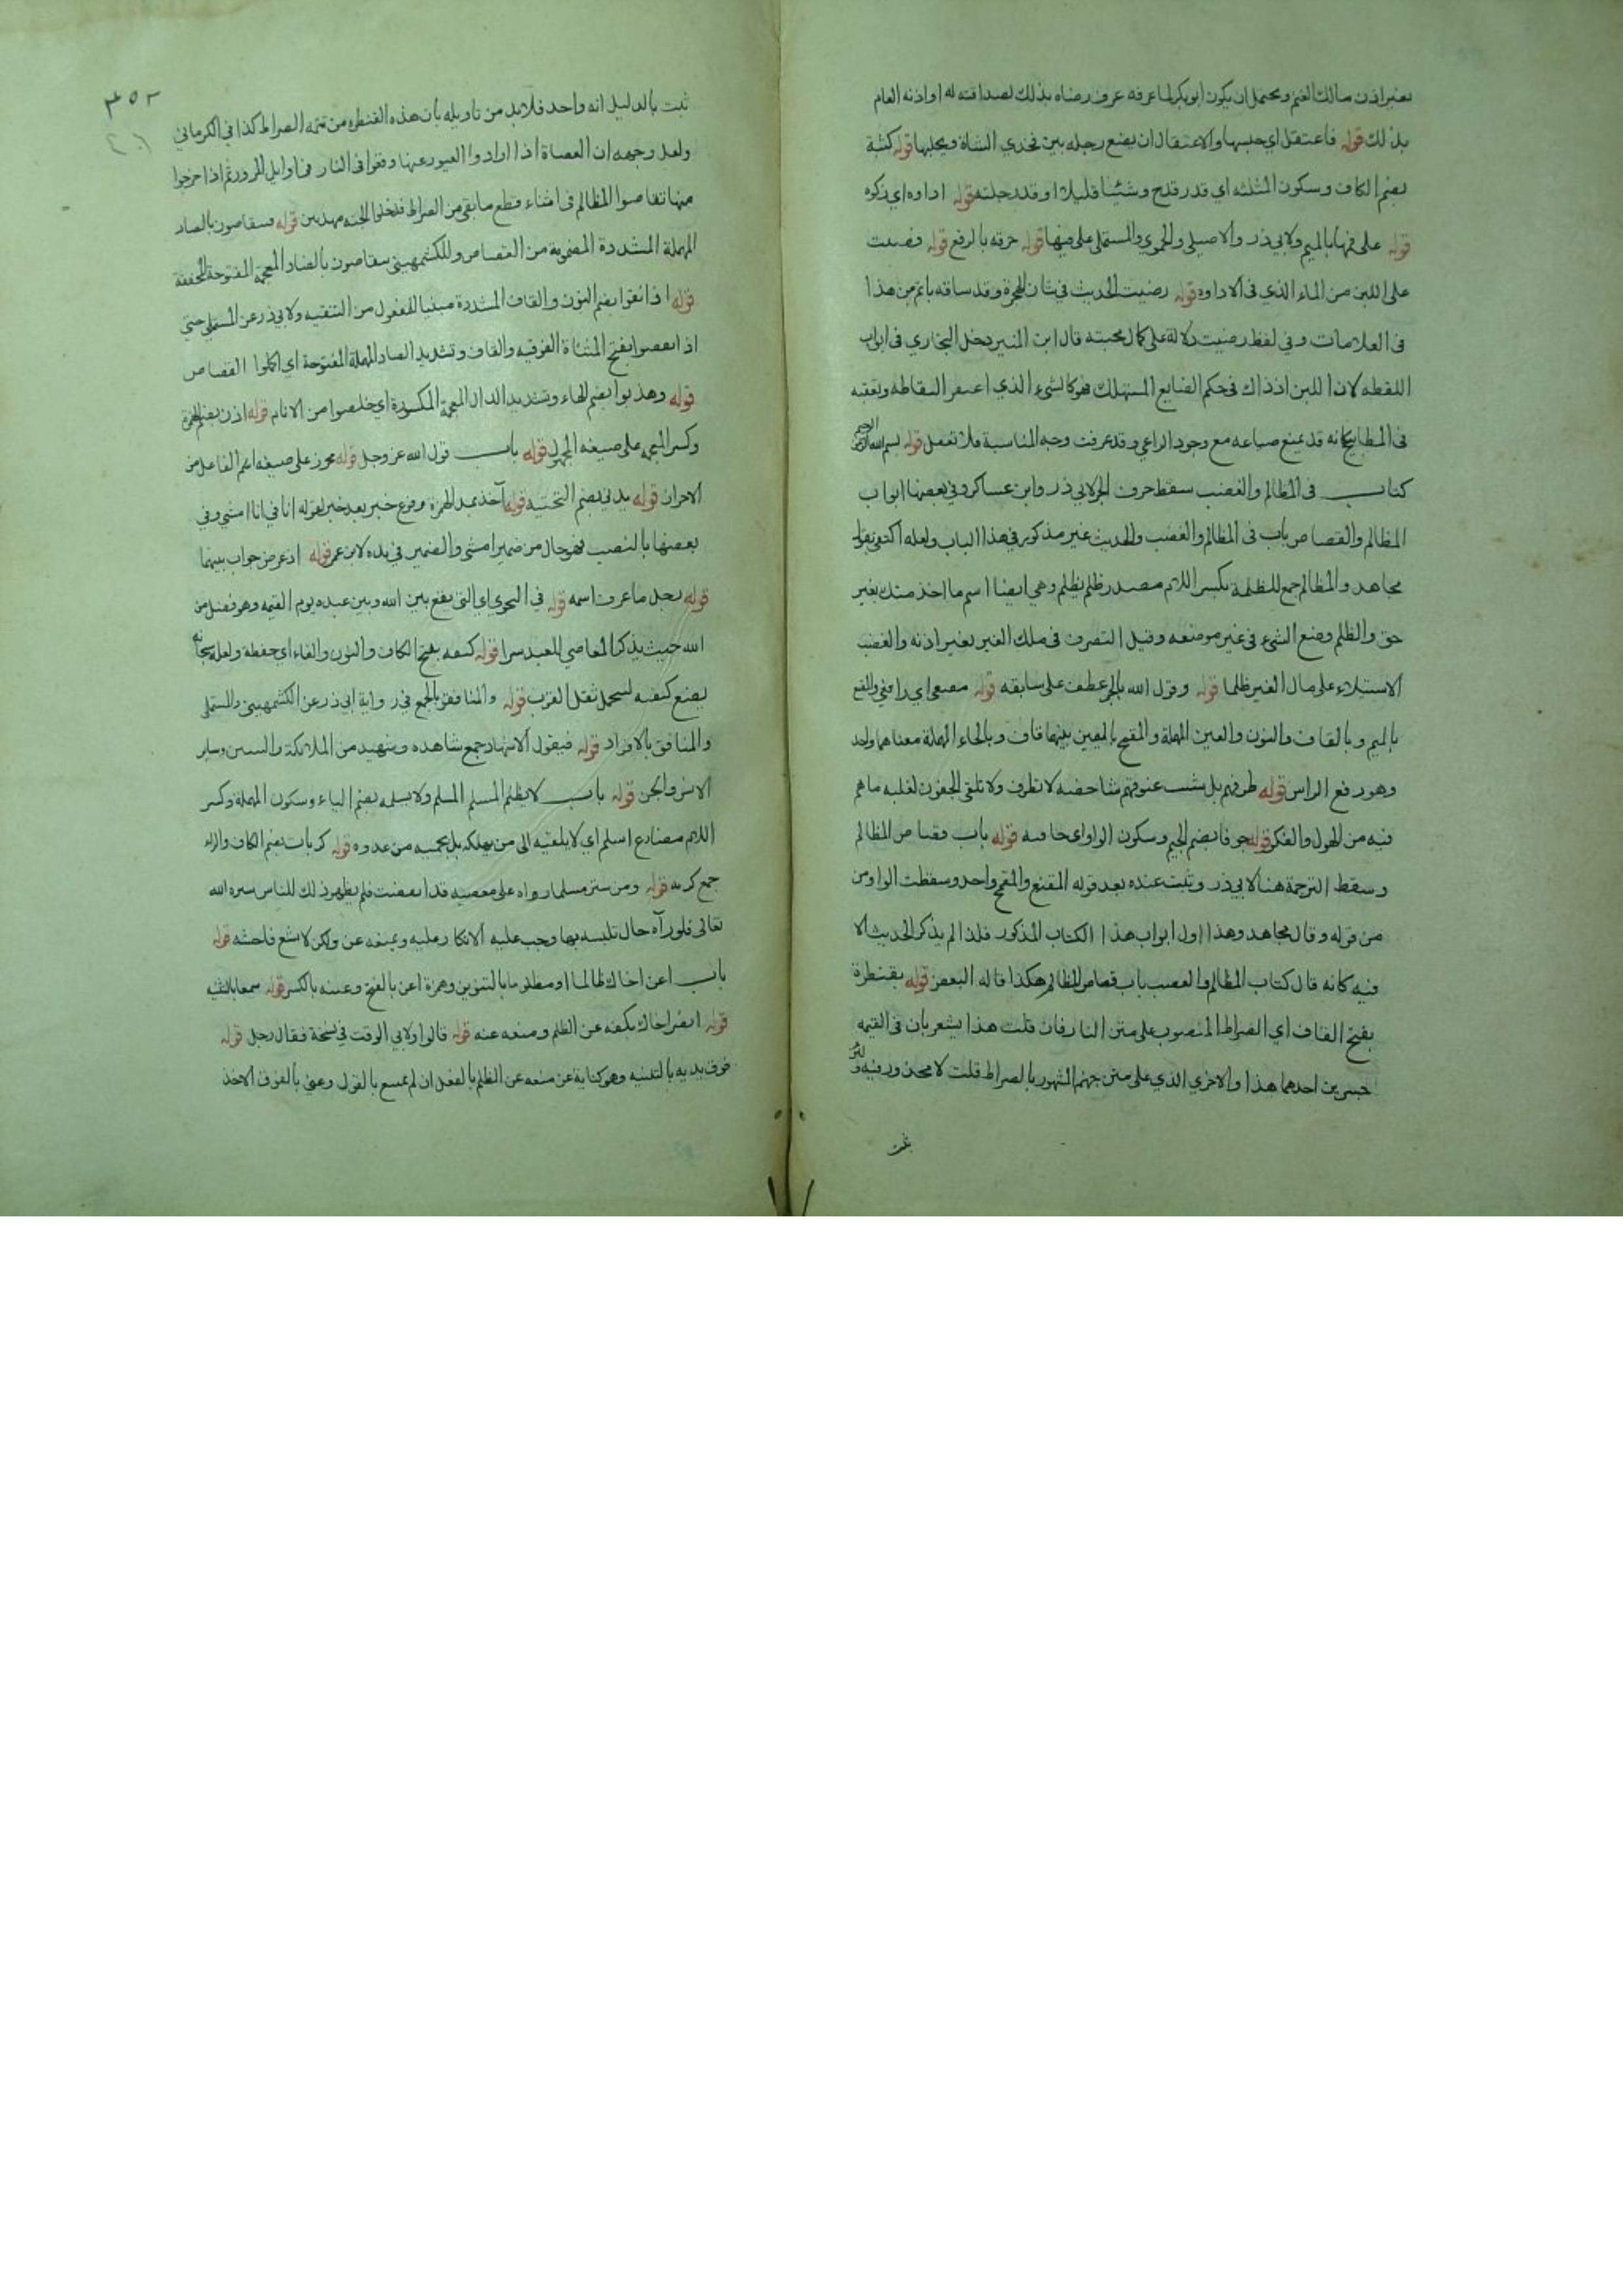 بغير اذن مالك الغنم ويحتمل ان يكون ابو بكر لما عرفه عرف رضاه بذلك لصداقته له او اذنه العام
بذلك قوله فاعتقل اي حبسها والاعتقال ان يضع رجله بين فخذي الشاة ويحلبها قوله كثبة
بضم الكاف وسكون المثلثه اي قدر قدح وشيئا قليلا او قدر حلبته قوله اداوه اي زكوه
قوله على فمها بالميم ولابي ذر والاصيلي والحموي والمستملي على فيها قوله خرقه بالرفع قوله فصببت
على اللبن من الماء الذي في الاداوه قوله رضيت الحديث في شان الهجرة وقد ساقه باتم من هذا
في العلامات وفي لفظ رضيت دلالة على كمال محبته قال ابن المنير دخل البخاري في ابواب
اللقطه لان اللبن اذ ذاك في حكم الضايع المستهلك فهو كالشيء الذي اغتفر التقاطه وتعقبه
في المصابيح بانه قد يمنع ضياعه مع وجود الراعي وقد عرفت وجه المناسبة فلا تغفل قوله بسم الله الرحمن الرحيم
كتاب في المظالم والغضب سقط حرف الجر لابي ذر وابن عساكر وفي بعضها ابواب
المظالم والقصاص باب في المظالم والغضب والحديث غير مذكور في هذا الباب ولعله اكتفى بقول
مجاهد والمظالم جمع للظلمة بكسر اللام مصدر ظلم يظلم وهي ايضا اسم ما اخذ منك بغير
حق والظلم وضع الشيء في غير موضعه وقيل التصرف في ملك الغير بغير اذنه والغضب
الاستيلاء على مال الغير ظلما قوله وقول الله بالجر عطف على سابقه قوله مقنعي اي رافعي والمقنع
بالميم وبالقاف والنون والعين المهملة والمقمح بالميمين بينهما قاف وبالحاء المهملة معناهما واحد
وهو رفع الراس قوله طرفهم بل تثبت عيونهم شاخصة لا تطرف ولا تلتقي الجفون لغلبه ما هم
فيه من الهول والفكر قوله جوفا بضم الجيم وسكون الواو اي خاويه قوله باب قصاص المظالم
وسقط الترجمة هنا لابي ذر وثبت عنده بعد قوله المقنع والمقمح واحد وسقطت الواو من
من قوله وقال مجاهد وهذا اول ابواب هذا الكتاب المذكور فلذا لم يذكر الحديث الا
فيه كانه قال كتاب المظالم والغصب باب قصاص المظالم هكذا قاله البعض قوله بقنطرة
بفتح القاف اي الصراط المنصوب على متن النار فان قلت هذا يشعر بان في القيمه
جسرين احدهما هذا والاخري الذي على متن جهنم المشهور بالصراط قلت لا محذور فيه ولئن
ثبت بالدليل انه واحد فلابد من تاويله بان هذه القنطره من تتمه الصراط كذا في الكرماني
ولعل وجهه ان العصاة اذا ارادوا العبور عنها وقعوا في النار في اوايل المرور ثم اذا خرجوا
منها تقاصوا المظالم في اثناء قطع ما بقي من الصراط فدخلوا الجنه مهذبين قوله فيتقاصون بالصاد
المهملة المشددة المضمومة من القصاص وللكشميهني يتقاضون بالضاد المعجمة المفتوحة المخففة
قوله اذا نقوا بضم النون والقاف المشددة مبنيا للمفعول من التنقيه ولابي ذر عن المستملي حتى
اذا تقصوا بفتح المثناة الفوقيه والقاف وتشديد الصاد المهملة المفتوحة اي اكملوا القصاص
قوله وهذبوا بضم الهاء وتشديد الذال المعجمة المكسورة اي خلصوا من الاثام قوله اذن بضم الهمزة
وكسر المعجمه على صيغه المجهول قوله باب قول الله عز وجل قوله محرز على صيغه اسم الفاعل من
الاحراز قوله يدني بضم التحتيه قوله آخذ بمد الهمزة وقع خبر بعد خبر لقوله انا في انا امشي وفي
بعضها بالنصب فهو حال من ضمير امشي والضمير في يده لابن عمر قوله اذ عرض جواب بينما
قوله رجل ما عرف اسمه قوله في النجوي اي التي تقع بين الله وبين عبده يوم القيمه وهو فضل من
الله حيث يذكر المعاصي للعبد سرا قوله كنفه بفتح الكاف والنون والفاء اي حفظه ولعله سبحانه
يضع كنفه ليتحمل ثقل القرب قوله والمنافقون بالجمع في رواية ابي ذر عن الكشميهني والمستملي
والمنافق بالافراد قوله فيقول الاشهاد جمع شاهد وشهيد من الملائكة والنبيين وساير
الانس والجن قوله باب لا يظلم المسلم المسلم ولا يسلمه بضم الياء وسكون المهملة وكسر
اللام مضارع اسلم اي لا يلقيه الى من يهلكه بل يحميه من عدوه قوله كربات بضم الكاف والراء
جمع كربه قوله ومن ستر مسلما رواه على معصيه قد انقضت فلم يظهر ذلك للناس ستره الله
تعالى فلو رآه حال تلبسه بها وجب عليه الانكار عليه ويمنعه عن ولكن لا يشع فاحشه قوله
باب اعن اخاك ظالما او مظلوما بالتنوين وهمزة اعن بالفتح وعينه بالكسر قوله سمعا بالتثنيه
قوله انصر اخاك بكفه عن الظلم ومنعه عنه قوله قالوا ولابي الوقت في نسخة فقال رجل قوله
فوق يديه بالتثنيه وهو كناية عن منعه عن الظلم بالفعل ان لم يمتنع بالقول وعني بالفوق الاخذ